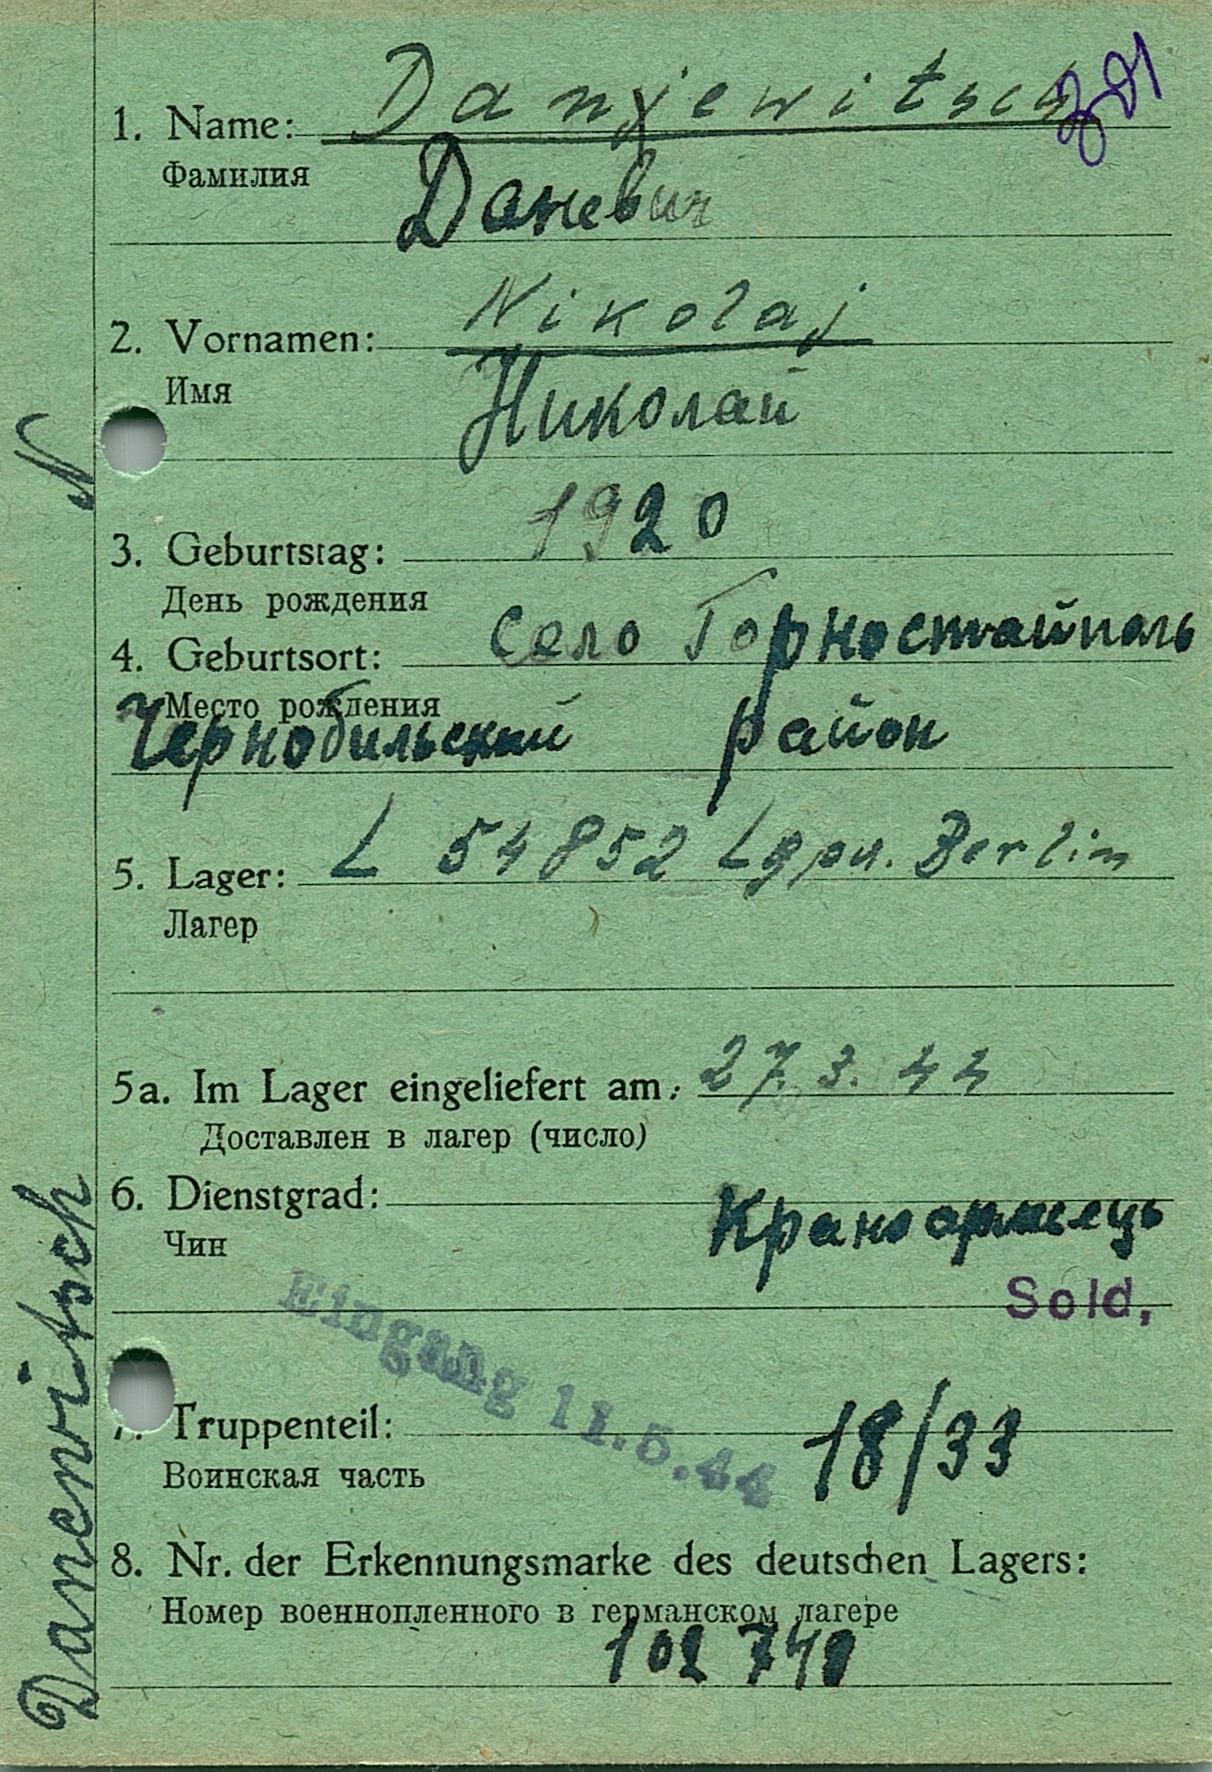 1. Name: Danjewitsch
Фамилия
Даневич
2. Vornamen: Nikolaj
Имя
Николай
1920
3. Geburtstag:
День рождения
4. Geburtsort: Село Горностайполь
Место рождения
Чернобильский район
5. Lager: L 54852 Lgpa. Berlin
Лагер
5a. Im Lager eingeliefert am: 27.3.44
Доставлен в лагер (число)
6. Dienstgrad:
Чин
Краноармєець
Sold.
Eingang 11.5.44
7. Truppenteil: 18/33
Воинская часть
8. Nr. der Erkennungsmarke des deutschen Lagers:
Номер военнопленного в германском лагере
102740
Danewitsch N